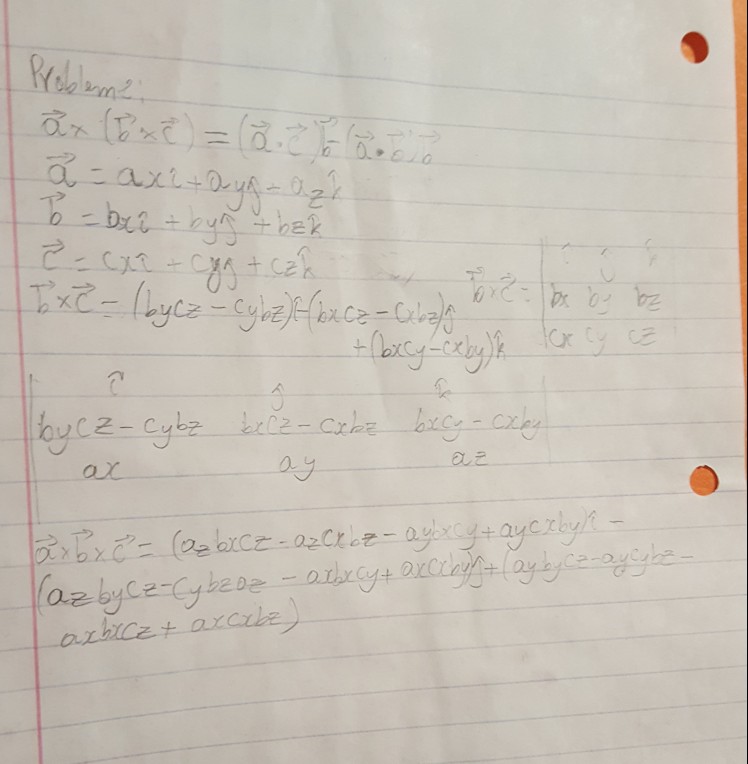 Problem 2:
a⃗ × (b⃗ × c⃗) = (a⃗ · c⃗)b⃗ - (a⃗ · b⃗)b⃗
a⃗ = axî + ayĵ - azk̂
b⃗ = bxî + byĵ + bzk̂
c⃗ = cxî + cyĵ + czk̂
b⃗ × c⃗ = (bycz - cybz)î - (bxcz - cxbz)ĵ
+ (bxcy - cxby)k̂
b⃗ × c⃗ = | î ĵ k̂
bx by bz
cx cy cz
î ĵ k̂
bycz - cybz bxcz - cxbz bxcy - cxby
ax ay az
a⃗ × b⃗ × c⃗ = (azbxcz - azcxbz - aybxcy + aycxby)î -
(azbycz - cybzaz - axbxcy + axcxby)ĵ + (aybycz - aycybz -
axbxcz + axcxbz)